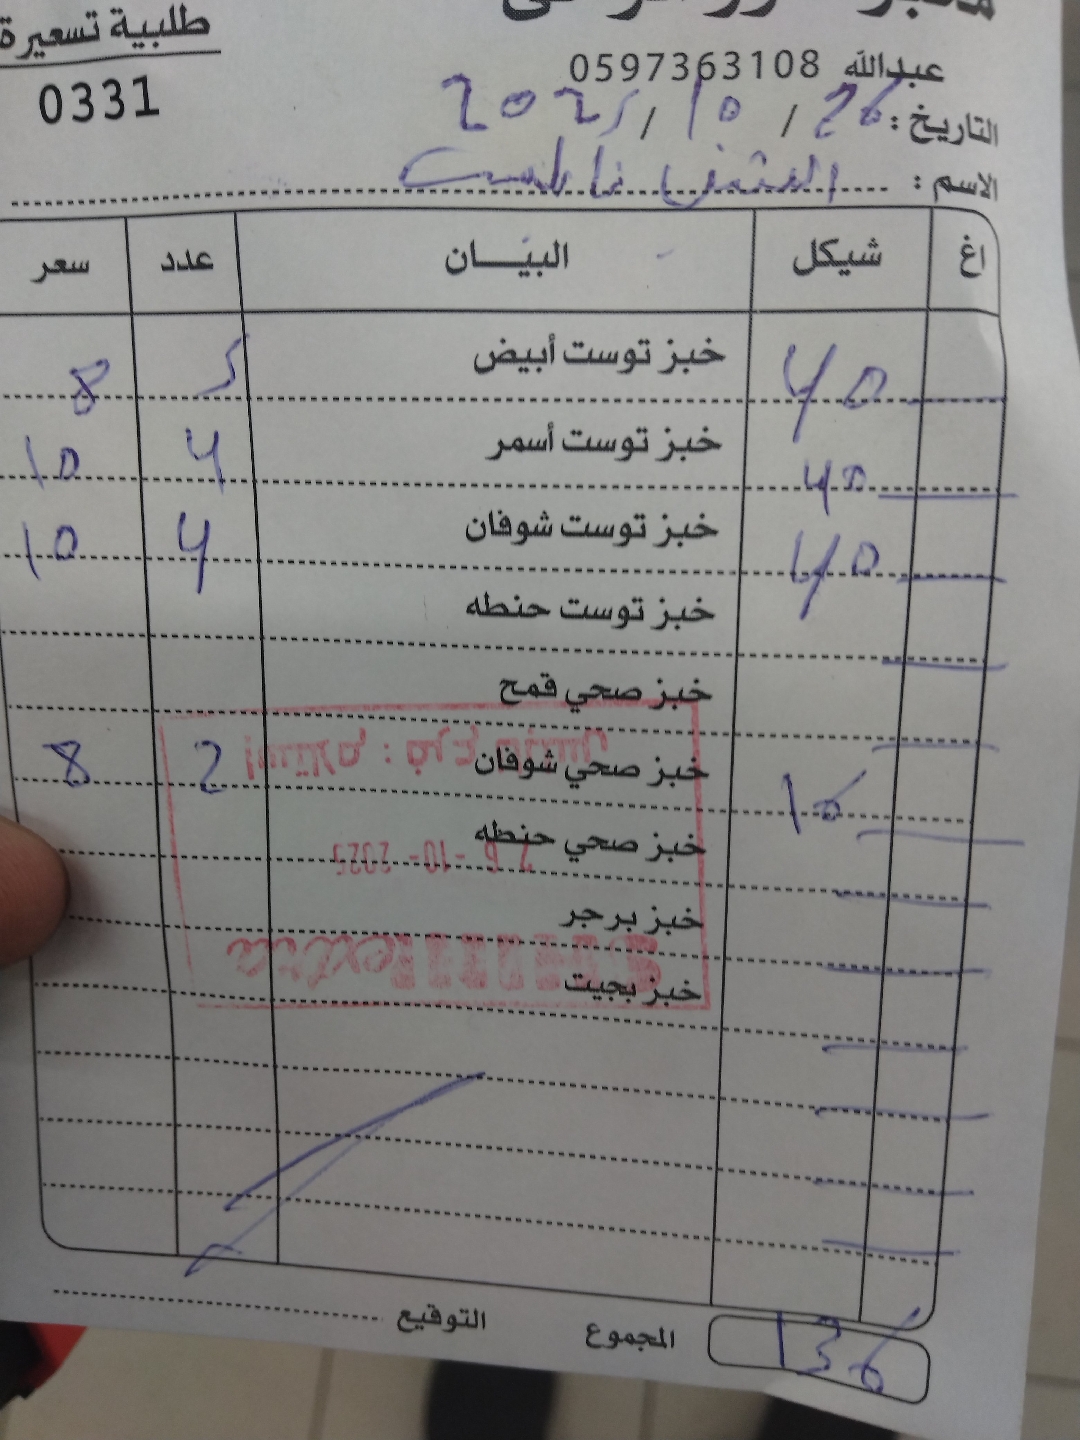 طلبية تسعيرة
0331
عبدالله 0597363108
التاريخ: 26 / 10 / 2025
الاسم :
اغ شيكل البيّان عدد سعر
40 خبز توست أبيض 5 8
40 خبز توست أسمر 4 10
40 خبز توست شوفان 4 10
خبز توست حنطه
خبز صحي قمح
16 خبز صحي شوفان 2 8
خبز صحي حنطه
خبز برجر
خبز بجيت
استلام : فرع
26 -10- 2025
المجموع 136
التوقيع